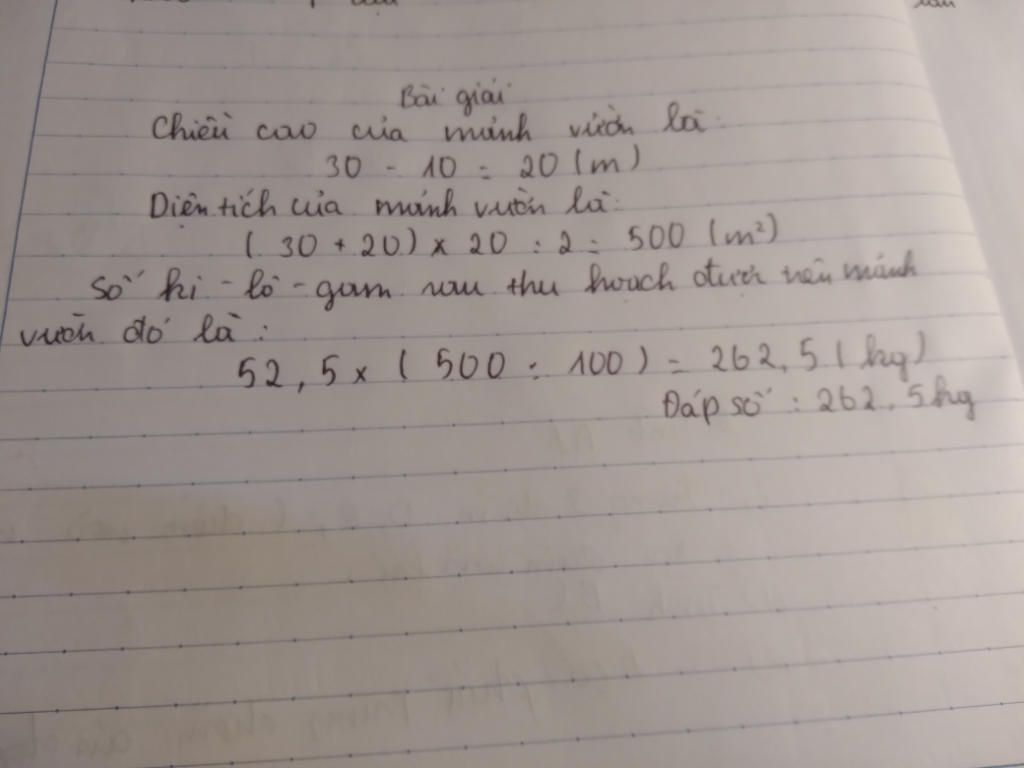 Bài giải
Chiều cao của mảnh vườn là:
30 - 10 = 20 (m)
Diện tích của mảnh vườn là:
( 30 + 20) x 20 : 2 = 500 (m²)
Số ki - lô - gam rau thu hoạch được trên mảnh
vườn đó là :
52,5 x ( 500 : 100 ) = 262,5 ( kg)
Đáp số : 262,5 kg